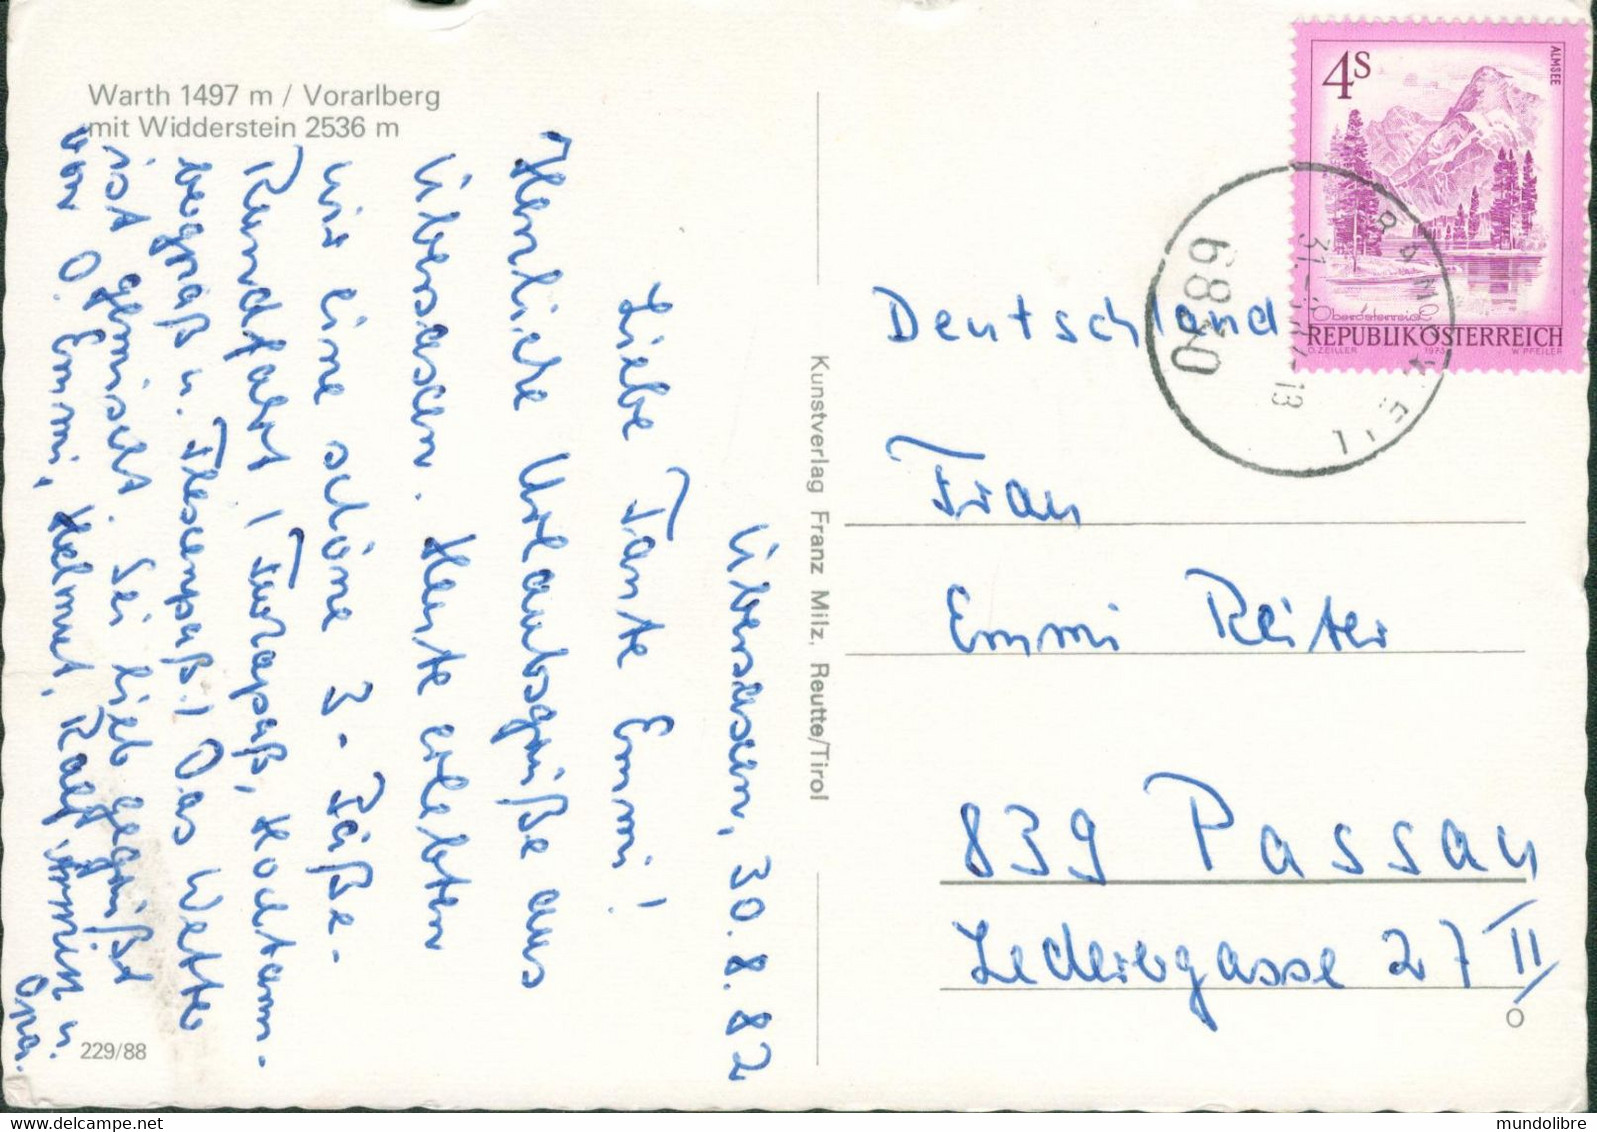 Warth 1497 m / Vorarlberg
mit Widderstein 2536 m
Übersaxen, 30.8.82
Liebe Tante Emmi!
Herzliche Urlaubsgrüße aus
Übersaxen. Heute erlebten
wir eine schöne 3-Päße-
Rundfahrt (Furkapaß, Hochtann-
bergpaß u. Flexenpaß.) Das Wetter
ist gemischt. Sei lieb gegrüßt
von O. Emmi, Helmut, Ralf, Armin u.
Opa.
229/88
Kunstverlag Franz Milz, Reutte/Tirol
4S
ALMSEE
Oberösterreich
REPUBLIK ÖSTERREICH
O. ZEILER 1973 W. PFEILER
6830
RANKWEIL 1
Deutschland
Frau
Emmi Reiter
839 Passau
Lederergasse 27 II
mundolibre